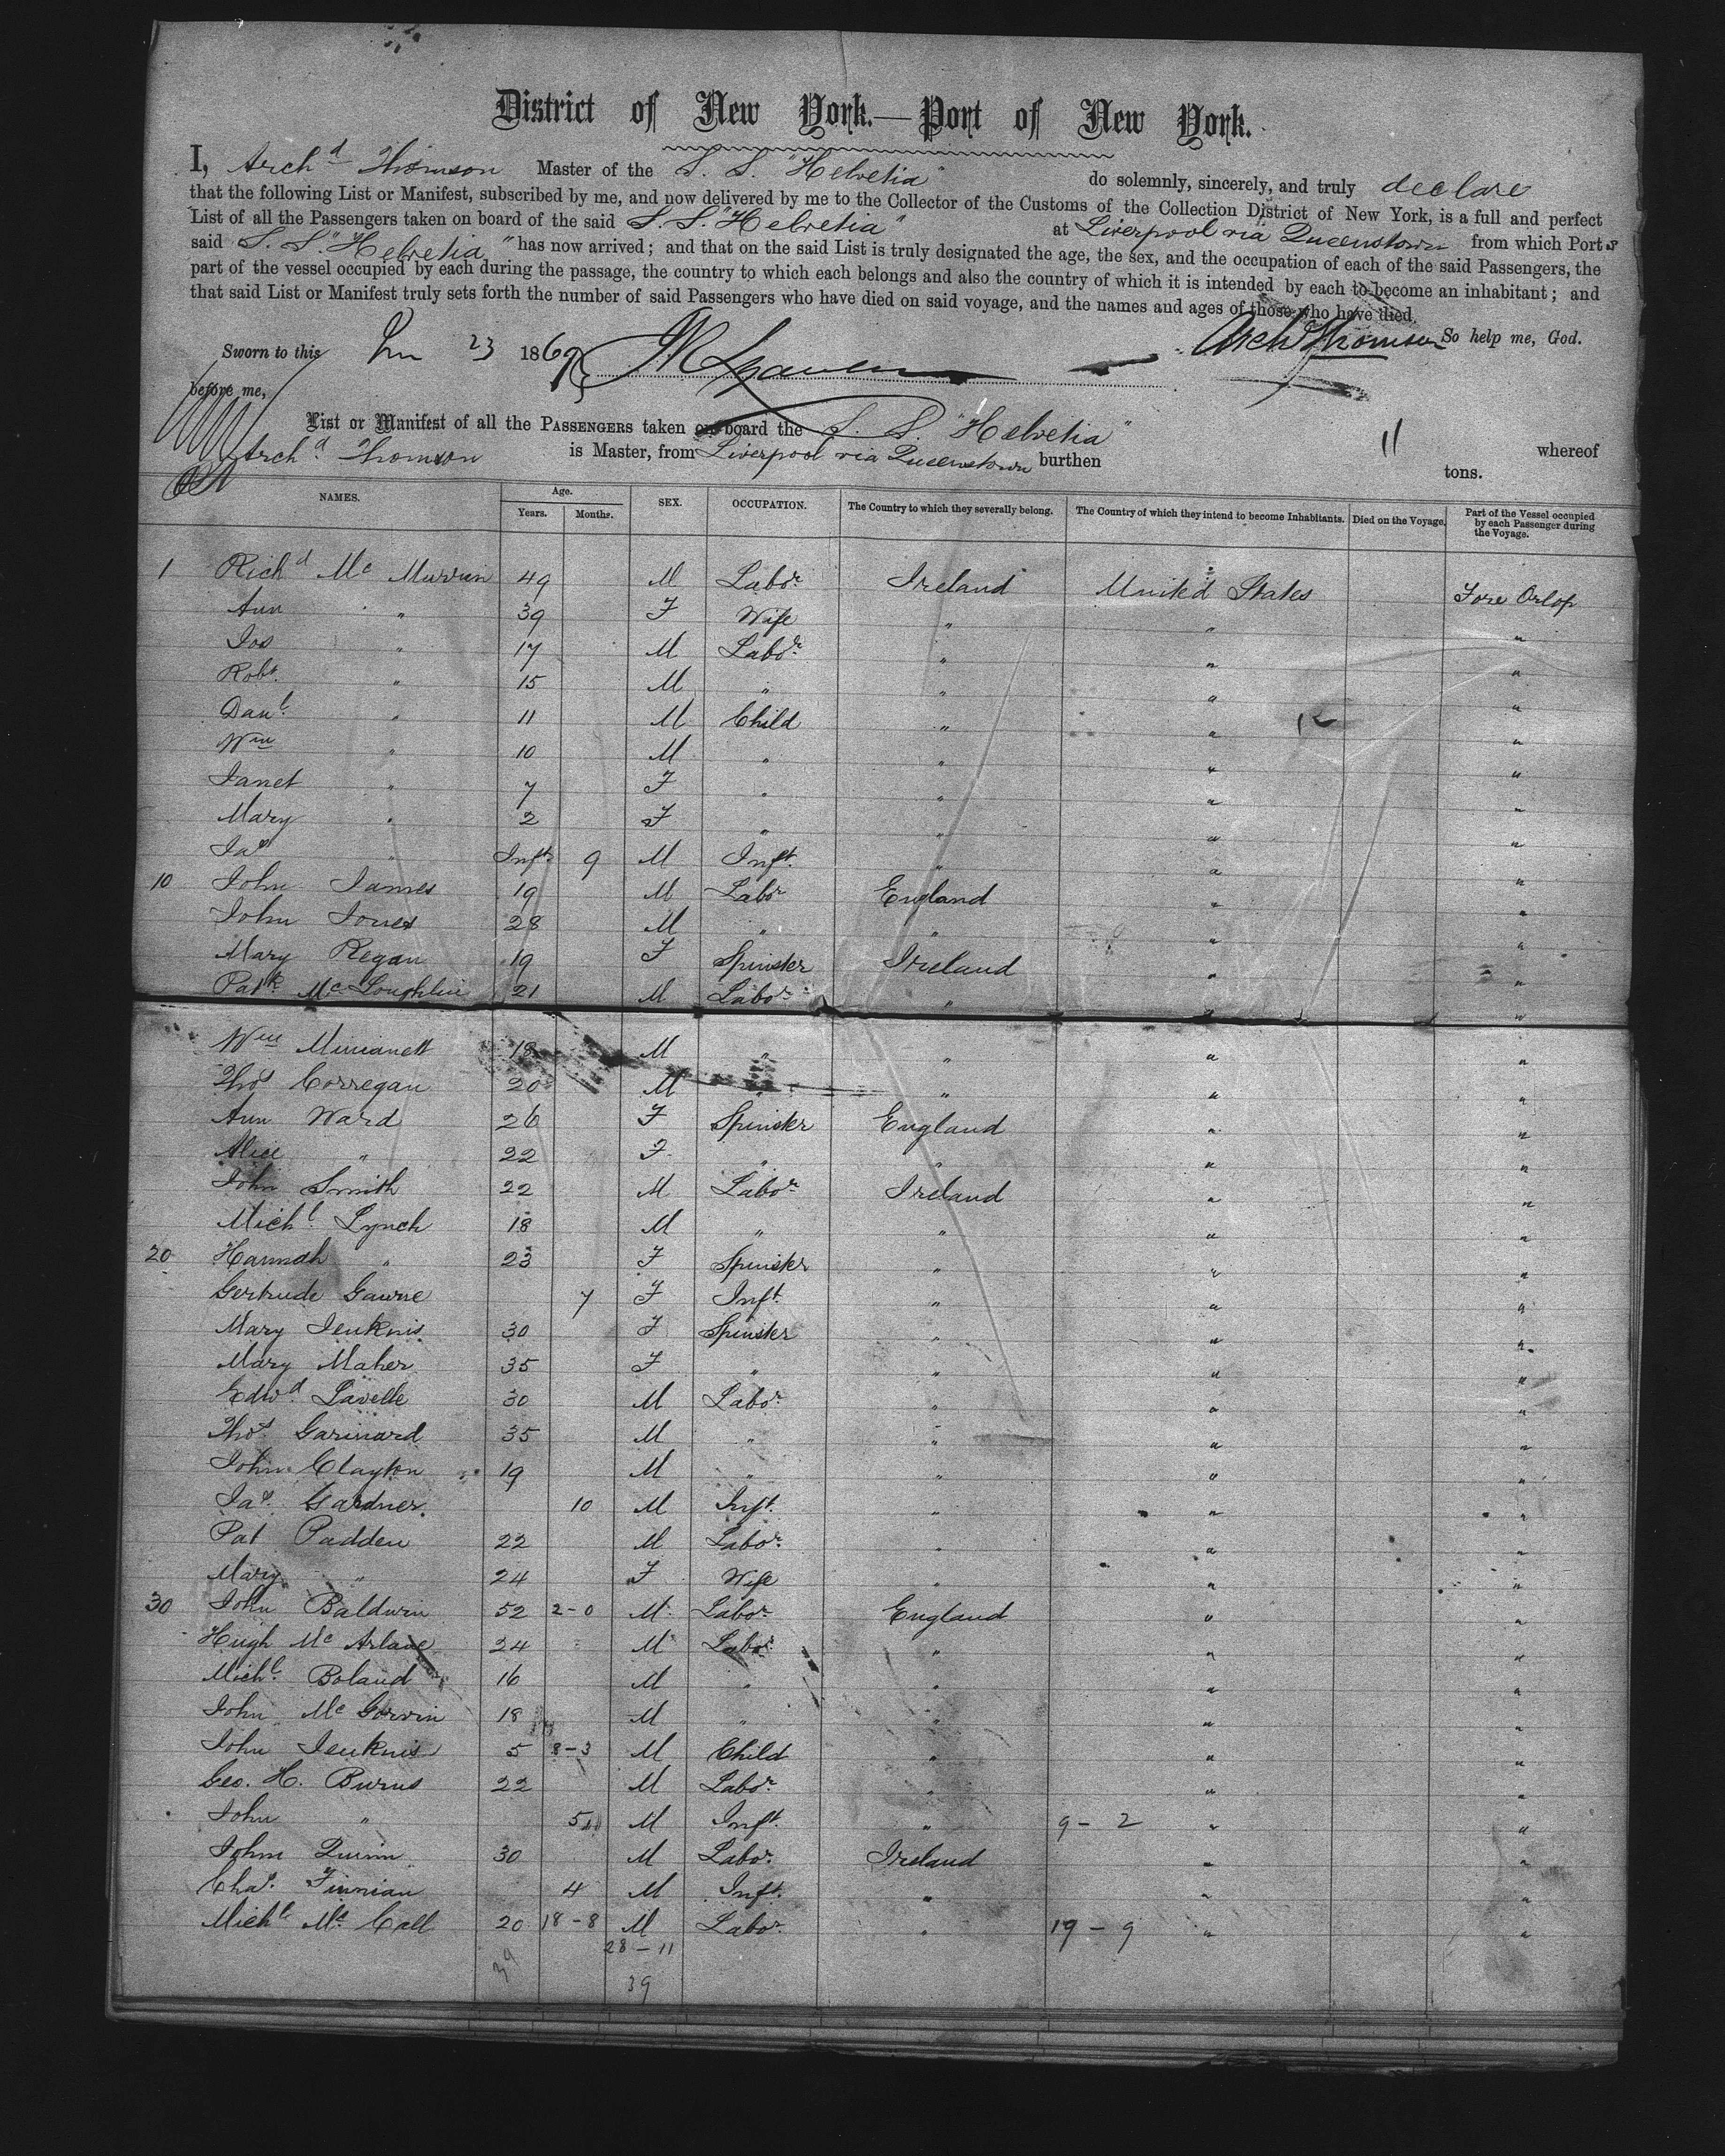 District of New York.—Port of New York.
I, Archd Thomson Master of the S. S. "Helvetia" do solemnly, sincerely, and truly declare
that the following List or Manifest, subscribed by me, and now delivered by me to the Collector of the Customs of the Collection District of New York, is a full and perfect
List of all the Passengers taken on board of the said S. S. "Helvetia" at Liverpool via Queenstown from which Port
said S. S. "Helvetia" has now arrived; and that on the said List is truly designated the age, the sex, and the occupation of each of the said Passengers, the
part of the vessel occupied by each during the passage, the country to which each belongs and also the country of which it is intended by each to become an inhabitant; and
that said List or Manifest truly sets forth the number of said Passengers who have died on said voyage, and the names and ages of those who have died.
Arch Thomson So help me, God.
Sworn to this 23 186
before me,
List or Manifest of all the PASSENGERS taken on board the S. S. "Helvetia" whereof
Archd Thomson is Master, from Liverpool via Queenstown burthen tons.
NAMES. Age. Years. Months. SEX. OCCUPATION. The Country to which they severally belong. The Country of which they intend to become Inhabitants. Died on the Voyage. Part of the Vessel occupied by each Passenger during the Voyage.
1 Richd Mc 49 M Labor Ireland United States Fore Orlop
Ann " 39 F Wife " " "
Jos " 17 M Labor " " "
Robt " 15 M " " " "
Danl " 11 M Child " " "
Wm " 10 M " " " "
Janet " 7 F " " " "
Mary " 2 F " " " "
Jas " Inft 9 M Inft. " " "
10 John James 19 M Labor England " "
John Jones 28 M " " " "
Mary Regan 19 F Spinster Ireland " "
Patk McLoughlin 21 M Labor " " "
Wm 18 M " " " "
Thos Corregan 20 M " " " "
Ann Ward 26 F Spinster England " "
Alice " 22 F " " " "
John Smith 22 M Labor Ireland " "
Michl Lynch 18 M " " " "
20 Hannah " 23 F Spinster " " "
Gertrude Gawne 7 F Inft. " " "
Mary Jenkins 30 F Spinster " " "
Mary Maher 35 F " " " "
Edwd Lavelle 30 M Labor " " "
Thos Garinard 35 M " " " "
John Clayton 19 M " " " "
Jas Gardner 10 M Inft. " " "
Pat Padden 22 M Labor " " "
Mary " 24 F Wife " " "
30 John Baldwin 52 2-0 M Labor England " "
Hugh Mc Arlane 24 M Labor " " "
Michl Boland 16 M " " " "
John Mc Gorvin 18 M " " " "
John Jenkins 5 8-3 M Child " " "
Geo. H. Burns 22 M Labor " " "
John " 5 M Inft. " 9-2 " "
John Quinn 30 M Labor Ireland " "
Chas Finnian 4 M Inft. " " "
Michl Mc Call 20 18-8 M Labor " 19-9 " "
28-11
39
39